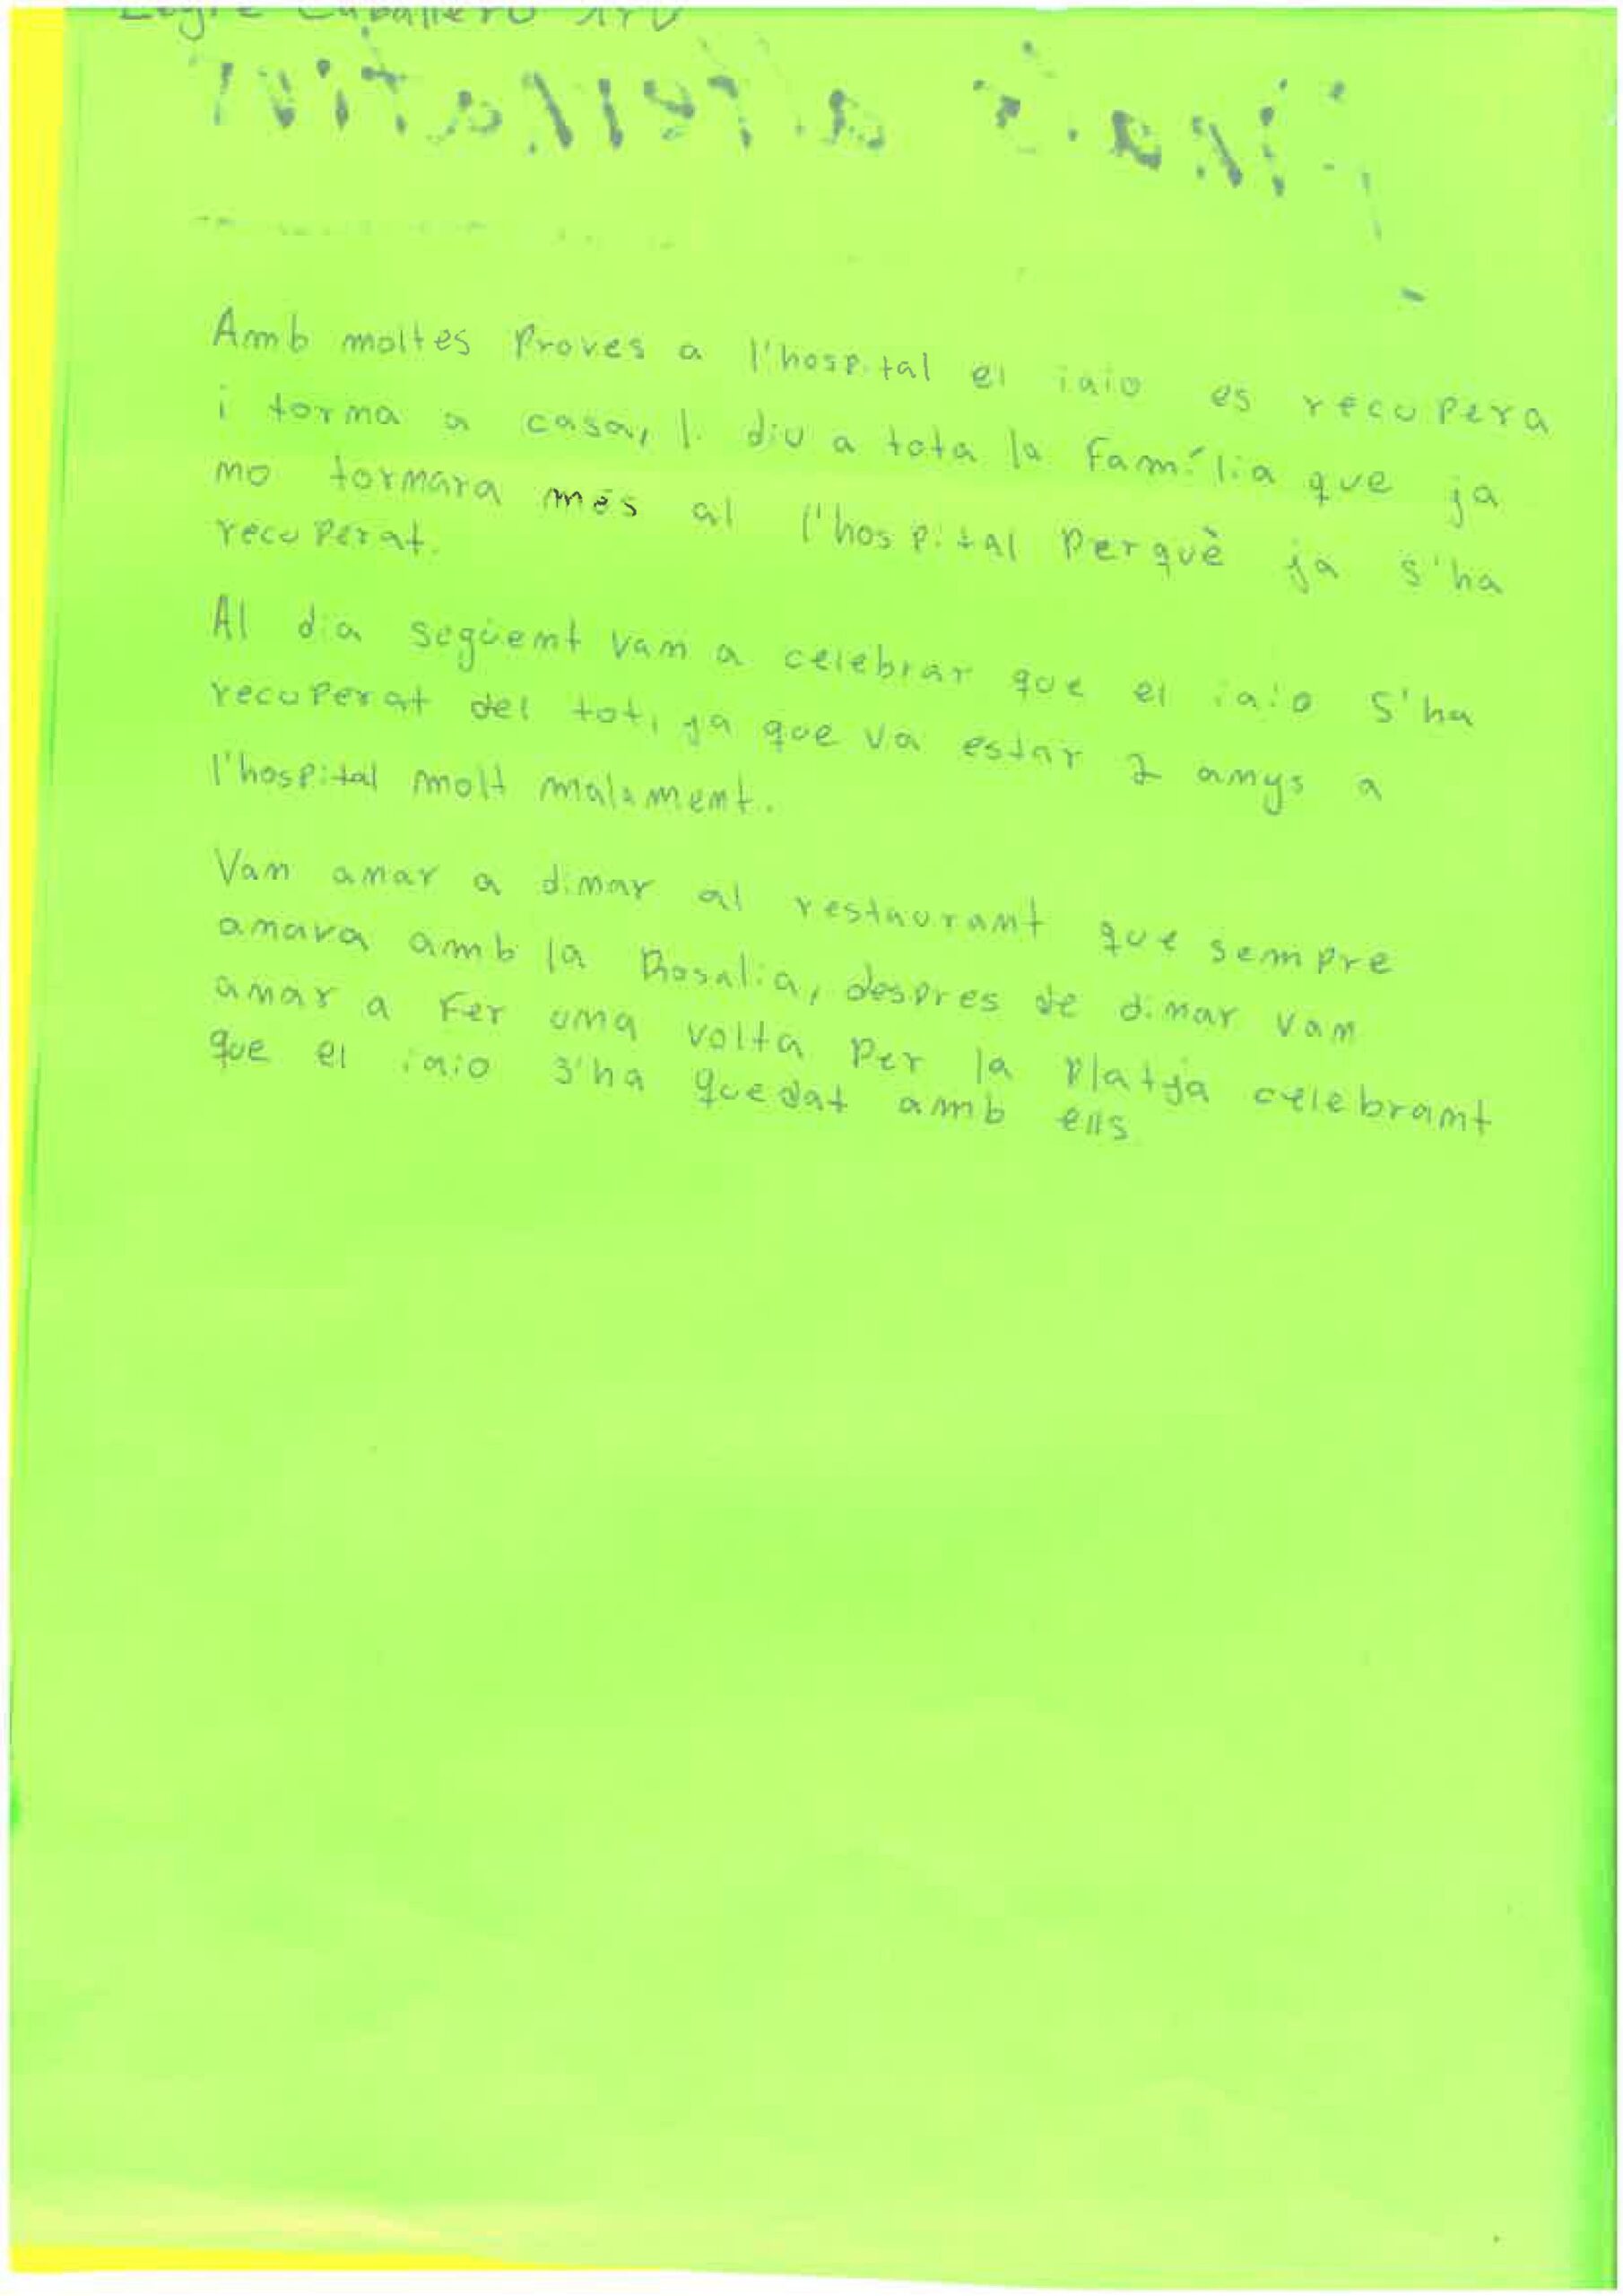 Caballero
Amb moltes proves a l'hospital el iaio es recupera
i torna a casa, li diu a tota la família que ja
no tornara més al l'hospital perquè ja s'ha
recuperat.
Al dia següent van a celebrar que el iaio s'ha
recuperat del tot, ja que va estar 2 anys a
l'hospital molt malament.
Van anar a dinar al restaurant que sempre
anava amb la Rosalia, despres de dinar van
anar a fer una volta per la platja celebrant
que el iaio s'ha quedat amb ells